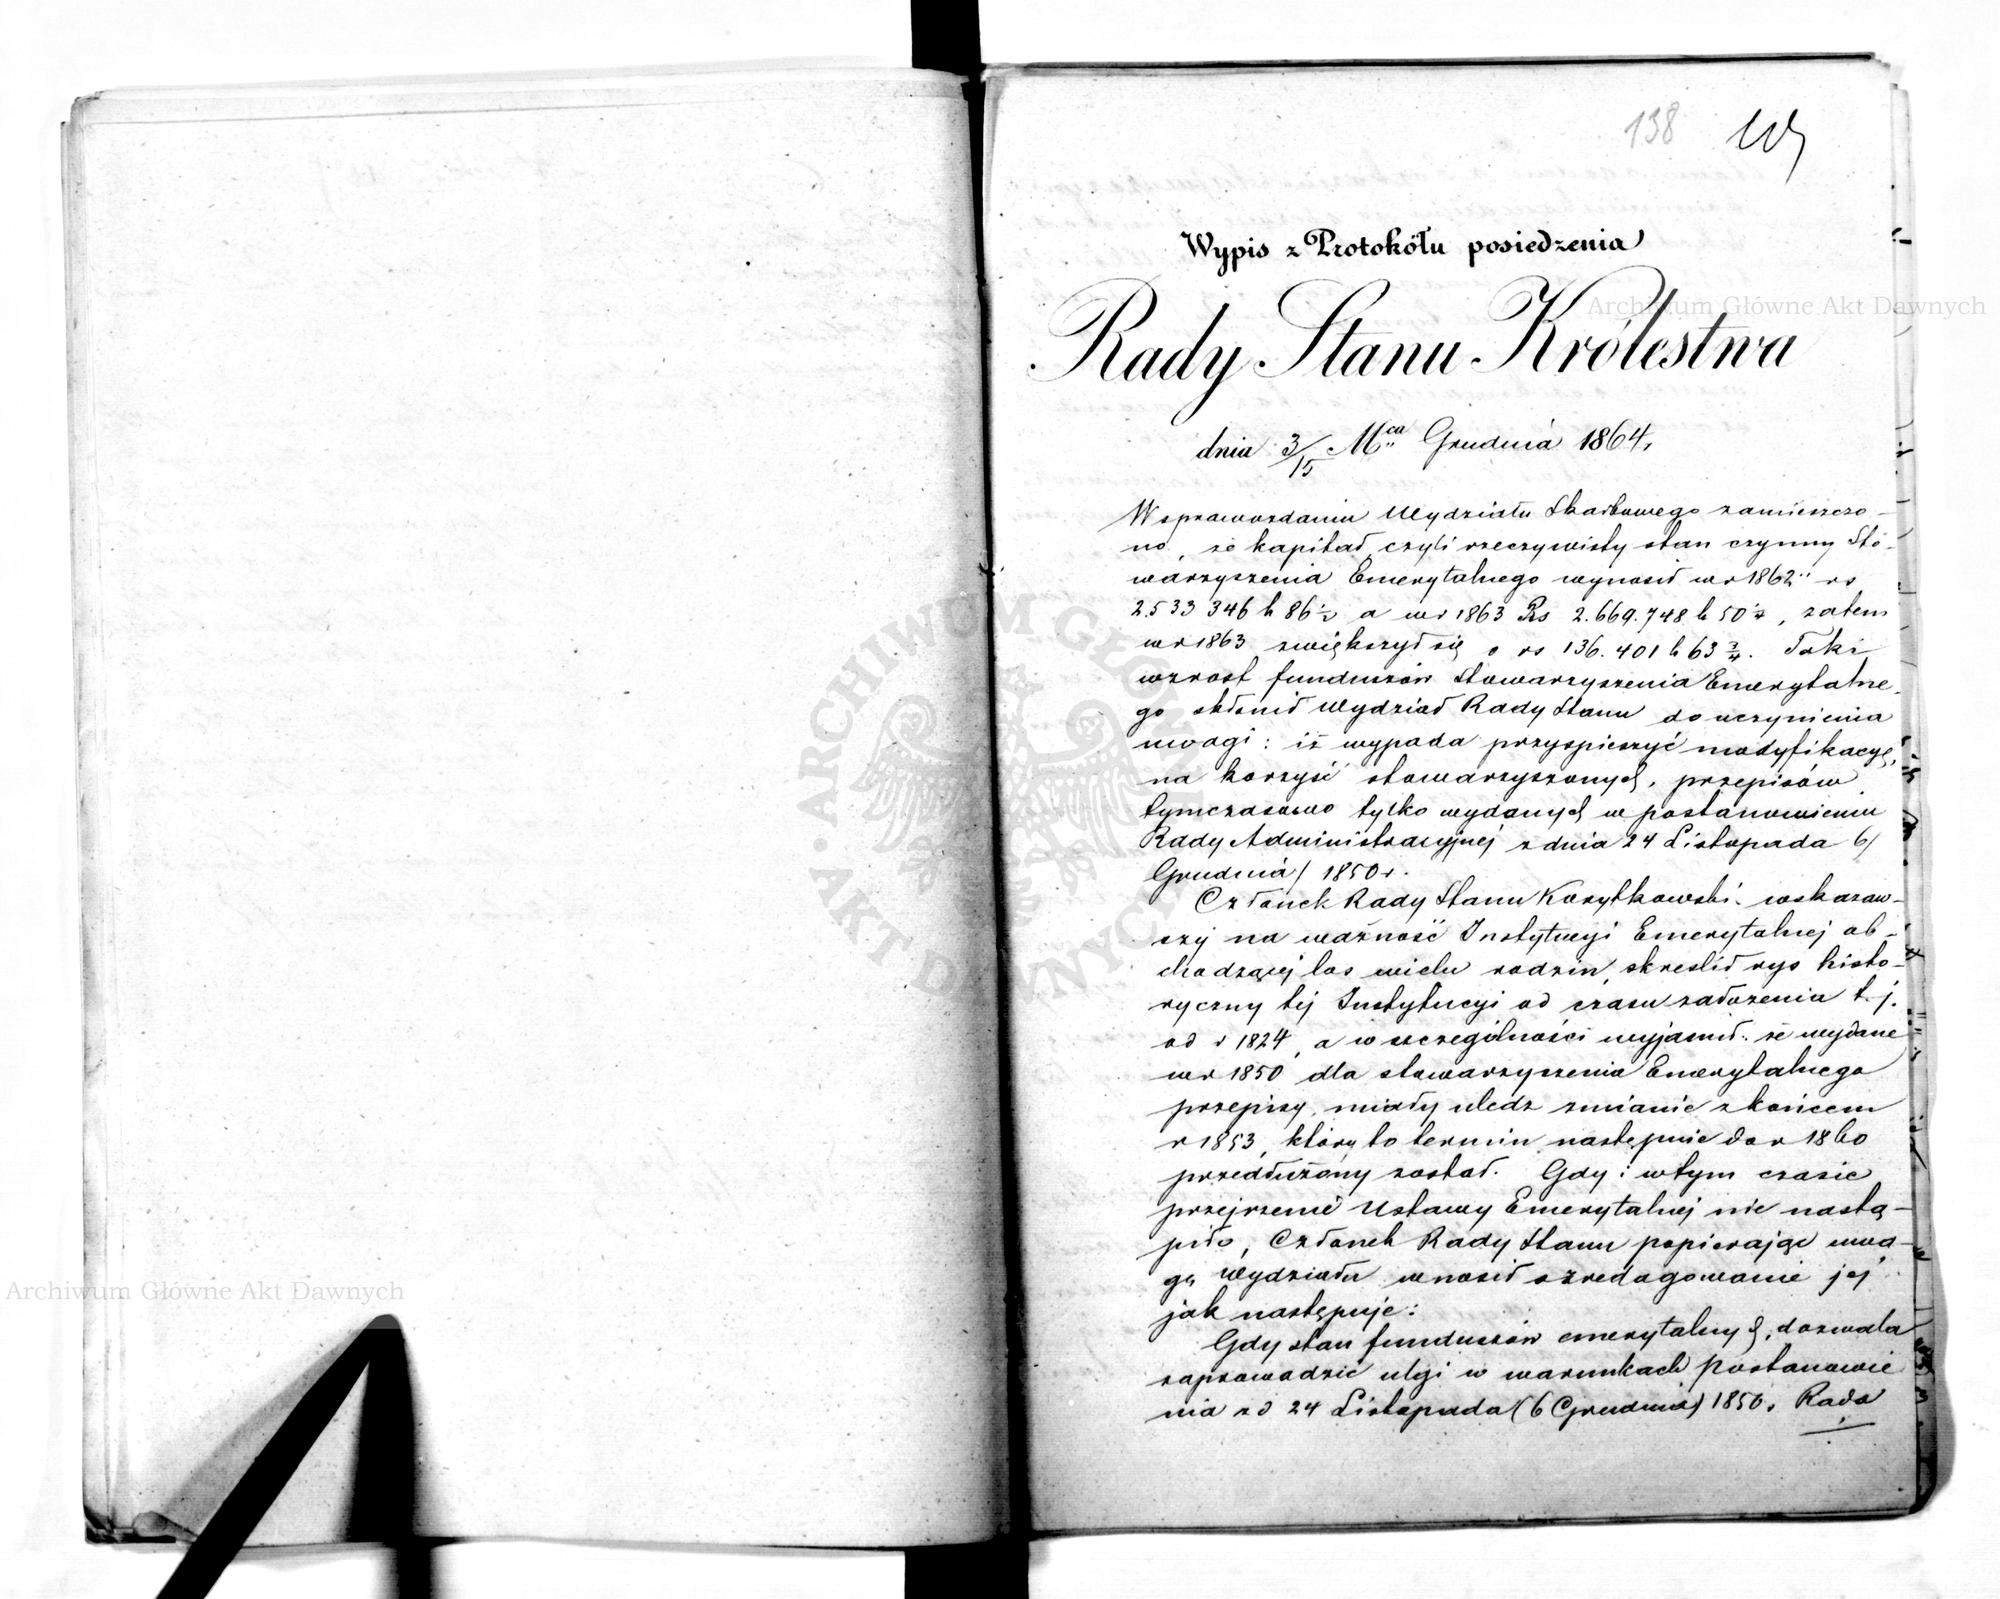 138
Wypis z Protokółu posiedzenia
Rady Stanu Królestwa
dnia 3/15 Mca Grudnia 1864.
W sprawozdaniu Wydziału Skarbowego zamieszczo-
no, że kapitał, czyli rzeczywisty stan czynny Sto-
warzyszenia Emerytalnego wynosił w r 1862 rs
2.533 346 k 86½ a w r 1863 Rs 2.669.748 k 50¼, zatem
w r 1863 zwiększył się o rs 136.401 k 63¾. Taki
wzrost funduszów Stowarzyszenia Emerytalne-
go skłonił Wydział Rady Stanu do uczynienia
uwagi: iż wypada przyspieszyć modyfikacyę,
na korzyść stowarzyszonych, przepisów
tymczasowo tylko wydanych w postanowieniu
Rady Administracyjnej z dnia 24 Listopada 6/
Grudnia/ 1850 r.
Członek Rady Stanu Korytkowski wskazaw-
szy na ważność Instytucyi Emerytalnej ob-
chodzącej los wielu rodzin, skreślił rys histo-
ryczny tej Instytucyi od czasu założenia t.j.
od r 1824, a w szczególności wyjaśnił: że wydane
w r 1850 dla stowarzyszenia Emerytalnego
przepisy, miały uledz zmianie z końcem
r 1853, który to termin następnie do r 1860
przedłużony został. Gdy i w tym czasie
przejrzenie Ustawy Emerytalnej nie nastą-
piło, Członek Rady Stanu popierając uwa-
gę Wydziału wnosił zredagowanie jej
jak następuje:
Gdy stan funduszów emerytalnych, dozwala
zaprowadzić ulgi w warunkach postanowie
nia z d 24 Listopada (6 Grudnia) 1850, Rada
Archiwum Główne Akt Dawnych
Archiwum Główne Akt Dawnych
ARCHIWUM GŁÓWNE AKT DAWNYCH